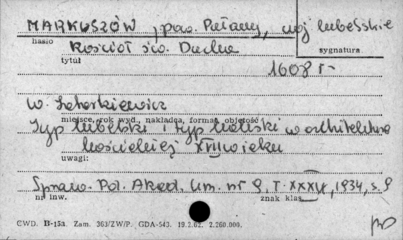 MARKUSZÓW, pow. Puławy, woj lubelskie
hasło
sygnatura
Kościół św. Ducha
tytuł
1608 r
W. Zahorkiewicz
miejsce, rok wyd., nakładca, format, objętość
Typ lubelski i typ kaliski w architekturze
kościelnej XVII wieku
uwagi:
Spraw. Pol. Akad. Um. nr 9, T. XXXIX, 1934, s. 9
nr inw.
znak klas.
CWD. B-15a. Zam. 363/ZW/P. GDA-543. 19.2.62. 2.260.000.